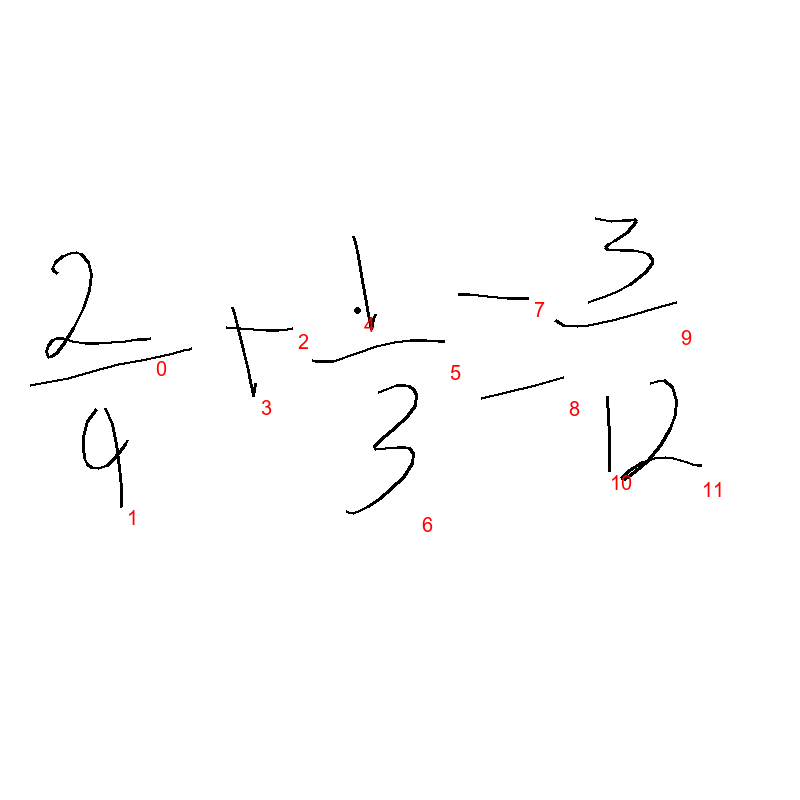 2/4 + 1/3 = 3/12
0 1 2 3 4 5 6 7 8 9 10 11